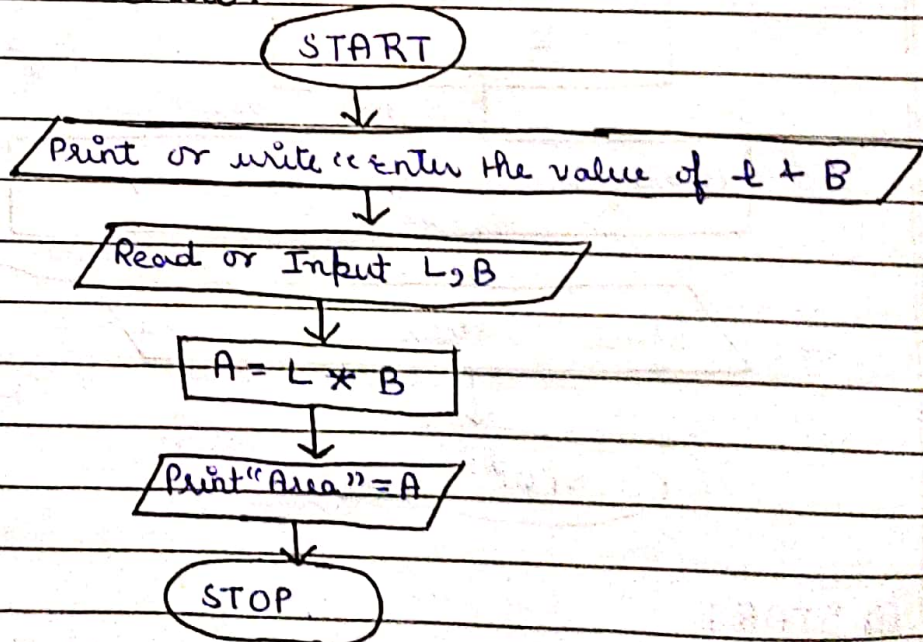 START
Print or write "Enter the value of l & B
Read or Input L, B
A = L * B
Print "Area" = A
STOP